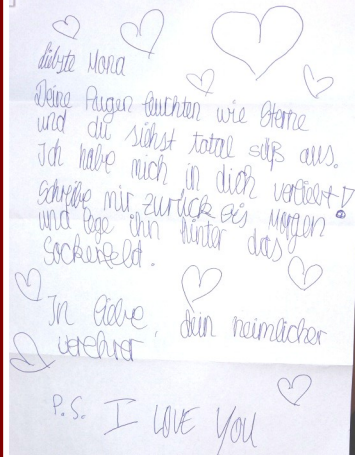 liebste Mona
Deine Augen leuchten wie Sterne
und du siehst total süß aus.
Ich habe mich in dich verliebt!
Schreibe mir zurück bis Morgen
und lege ihn hinter das
Sockerfeld.
In liebe, dein heimlicher
verehrer
P.S. I LOVE YOU